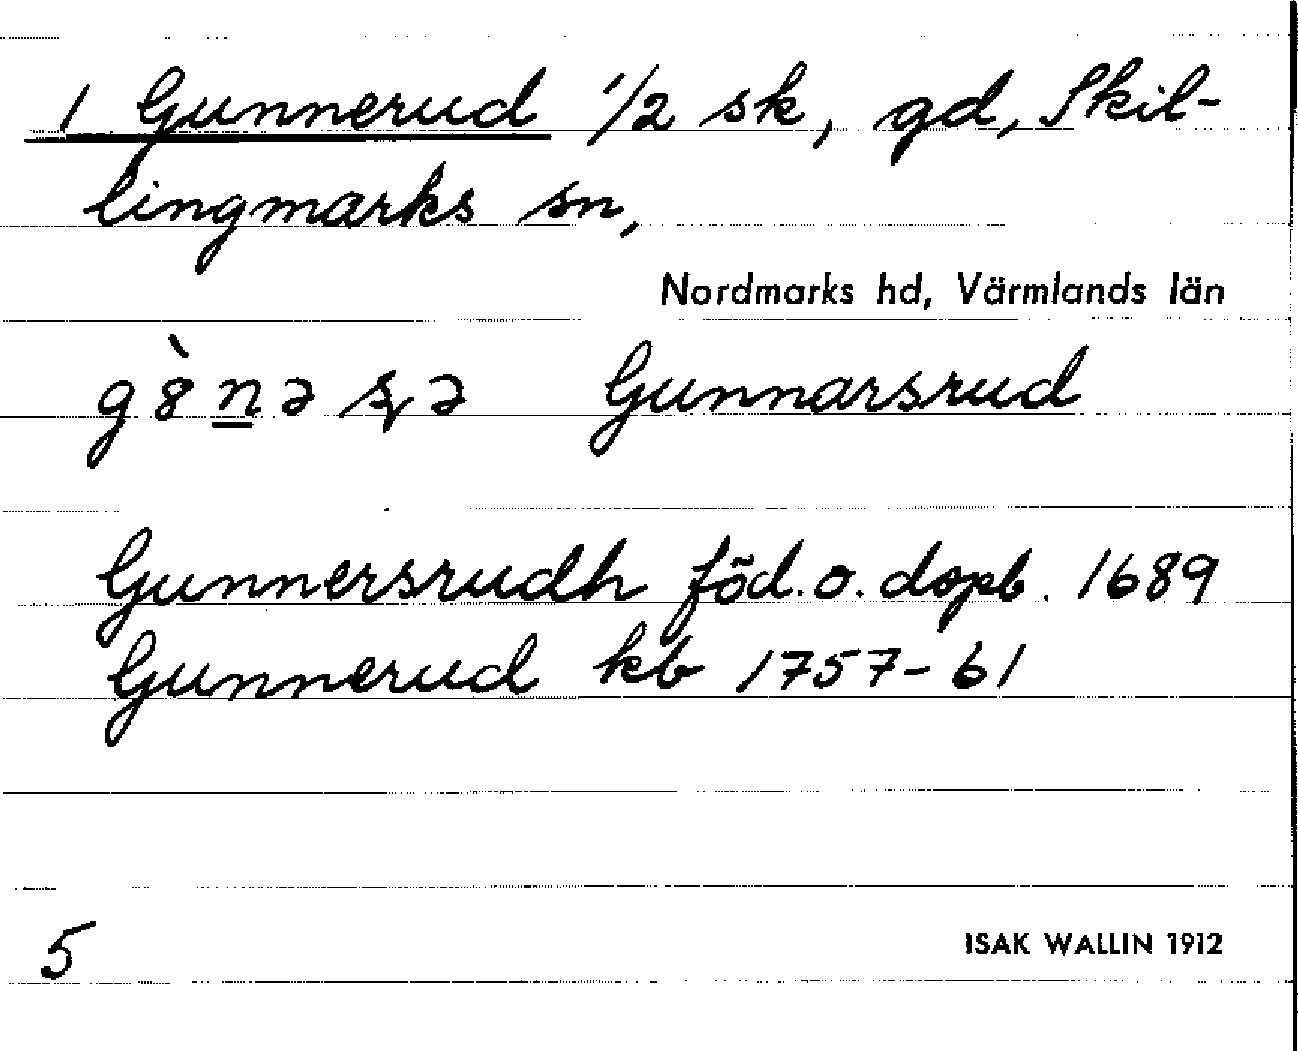 1 Gunnerud 1/2 sk, gd, Skil-
lingmarks sn,
Nordmarks hd, Värmlands län
Gunnarsrud
Gunnersrudh föd. o. dopb. 1689
Gunnerud kb 1757-61
5
ISAK WALLIN 1912